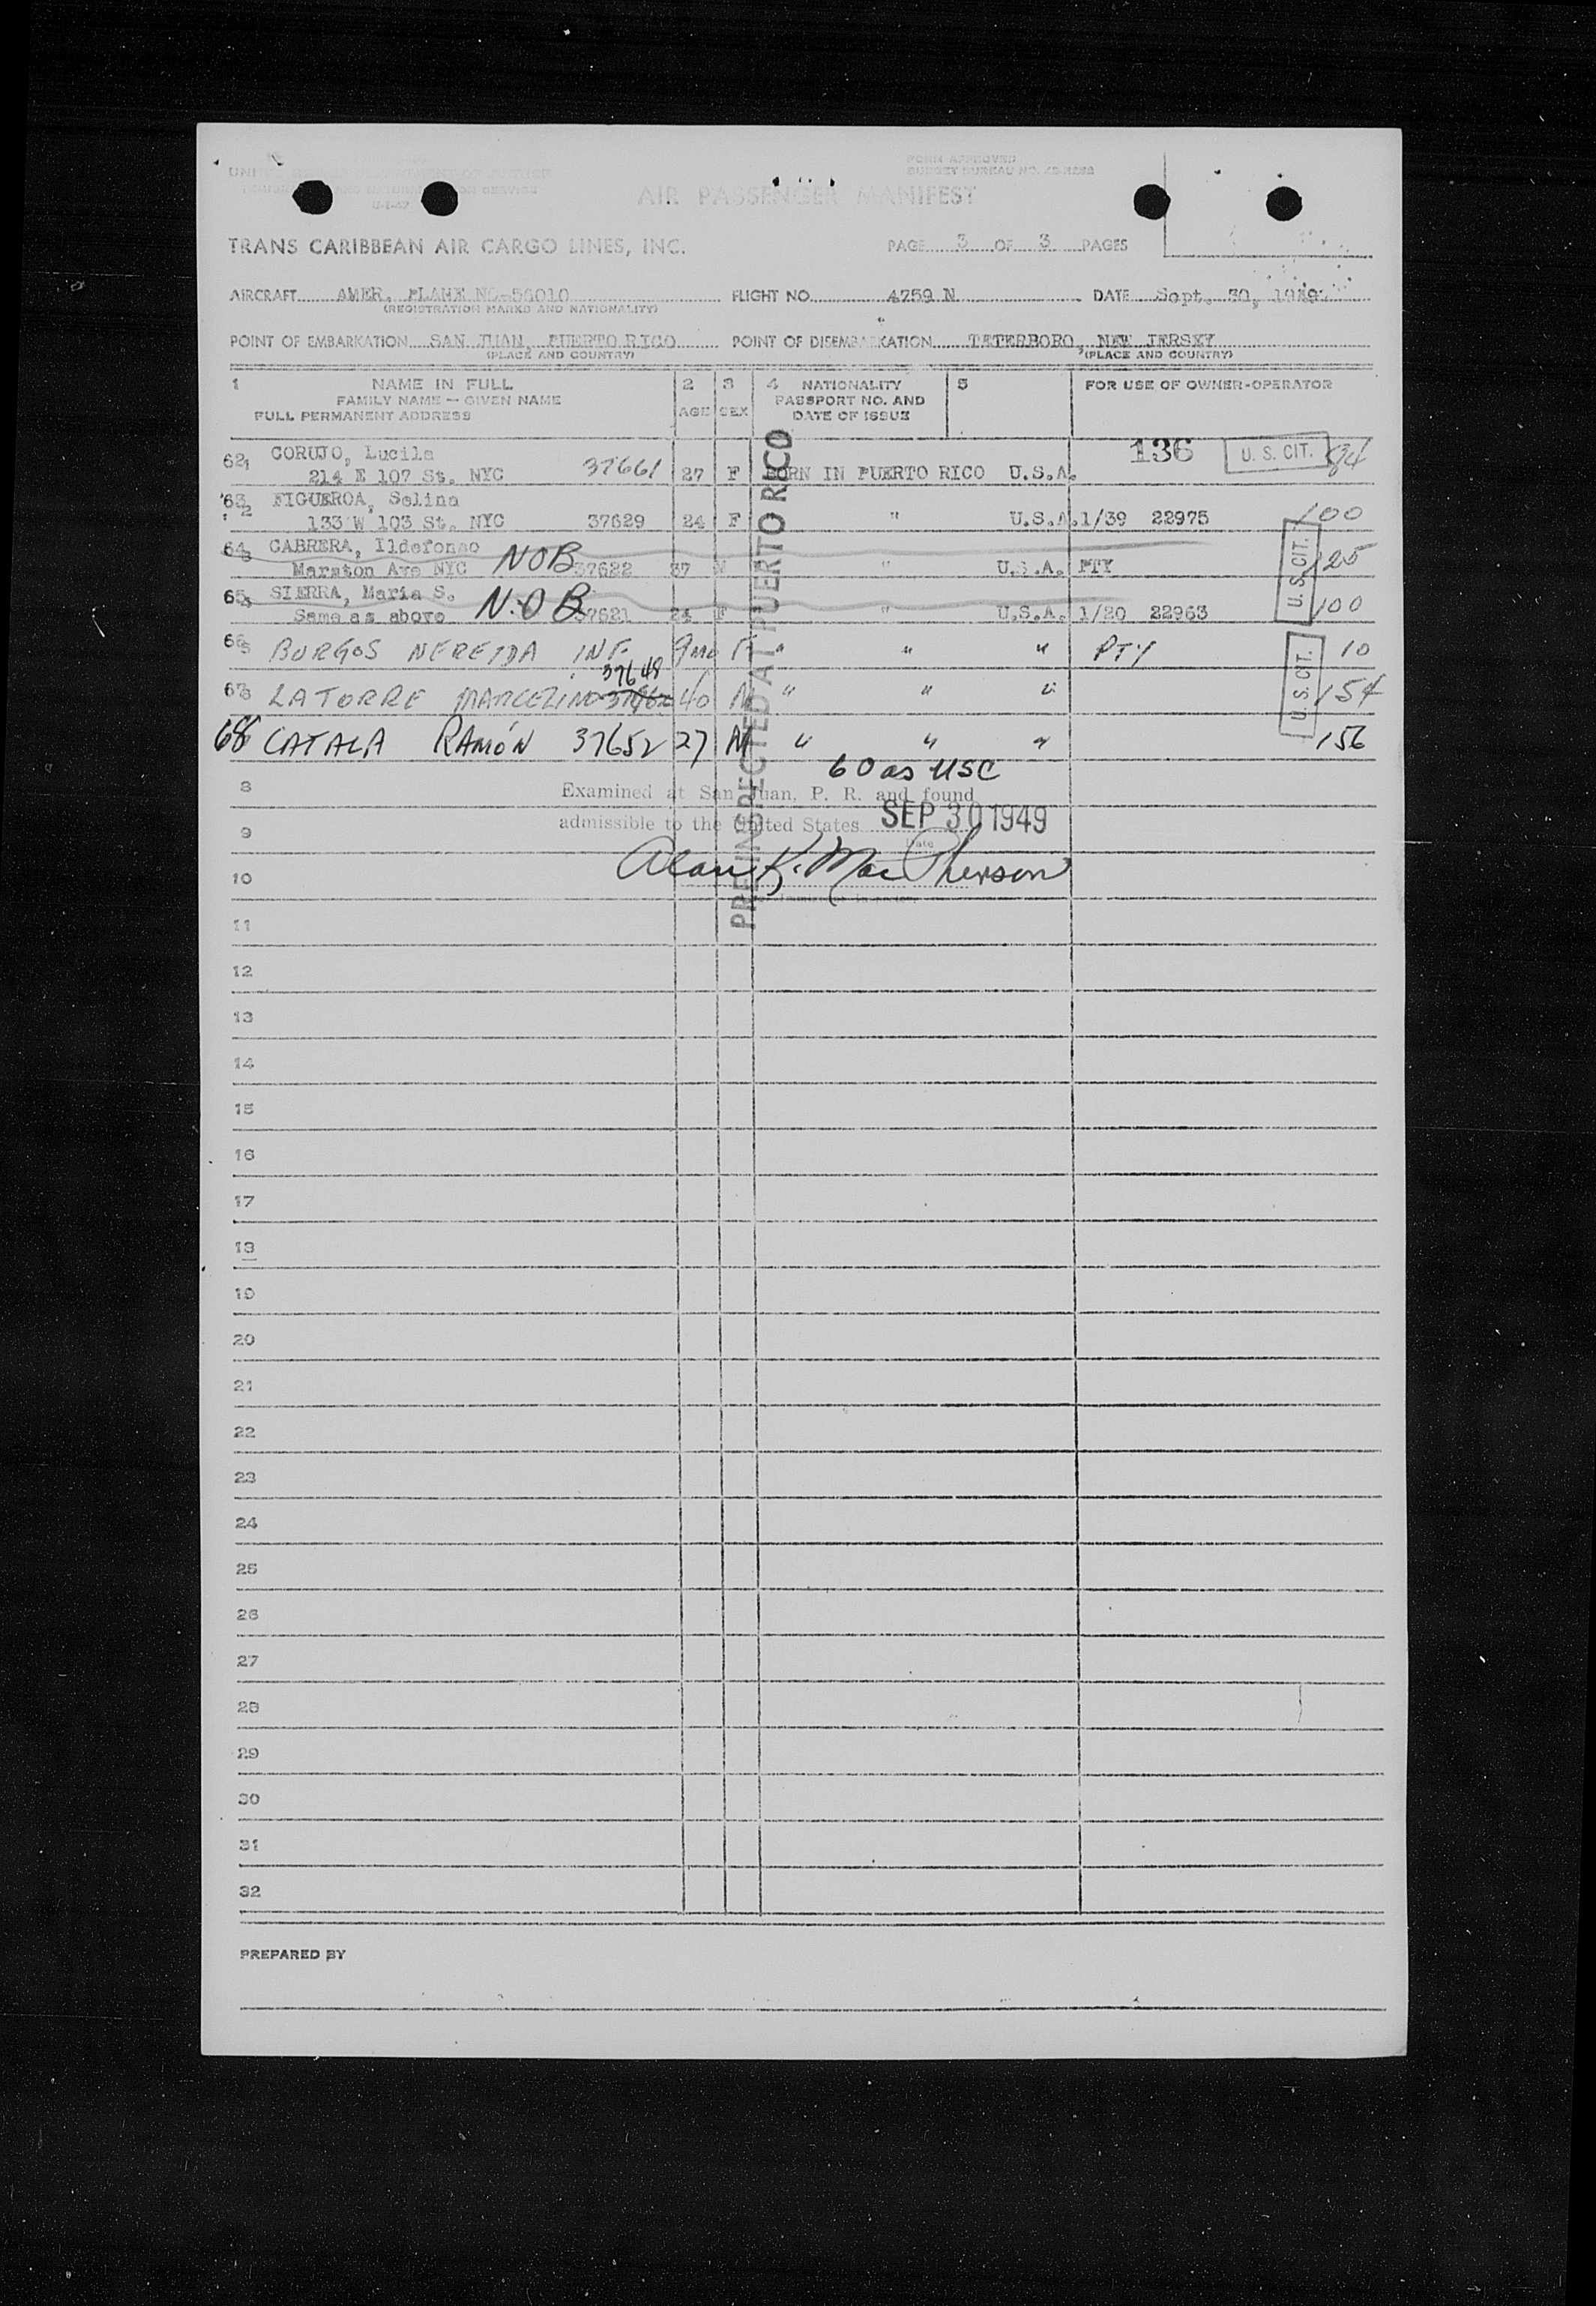 FORM APPROVED
BUDGET BUREAU NO.
AIR PASSENGER MANIFEST
TRANS CARIBBEAN AIR CARGO LINES, INC. PAGE 3 OF 3 PAGES
AIRCRAFT AMER. PLANE NC-56010 FLIGHT NO. 4259 N DATE Sept. 30, 1949
(REGISTRATION MARKS AND NATIONALITY)
POINT OF EMBARKATION SAN JUAN, PUERTO RICO POINT OF DISEMBARKATION TETERBORO, NEW JERSEY
(PLACE AND COUNTRY) (PLACE AND COUNTRY)
1 NAME IN FULL 2 3 4 NATIONALITY 5 FOR USE OF OWNER-OPERATOR
FAMILY NAME — GIVEN NAME PASSPORT NO. AND
FULL PERMANENT ADDRESS AGE SEX DATE OF ISSUE
136 U. S. CIT. 84
62 1 CORUJO, Lucila
214 E 107 St. NYC 37661 27 F BORN IN PUERTO RICO U.S.A.
63 2 FIGUEROA, Selina
133 W 103 St. NYC 37629 24 F " U.S.A. 1/39 22975 100
64 3 CABRERA, Ildefonso
Marston Ave NYC NOB 37622 37 M " U.S.A. PTY 125
65 SIERRA, Maria S.
Same as above N.O.B 37621 24 F " U.S.A. 1/20 22963 100
U. S. CIT.
66 5 BURGOS NEREIDA INF. 9mo F " " " PTY 10
37648
67 6 LATORRE MARCELINO 40 M " " " 154
U. S. CIT.
68 CATALA RAMÓN 37652 27 M " " " 156
60 as USC
8 Examined at San Juan, P. R. and found
9 admissible to the United States SEP 30 1949
Date
10 Alan K. MacPherson
PREINSPECTED AT PUERTO RICO
11
12
13
14
15
16
17
18
19
20
21
22
23
24
25
26
27
28
29
30
31
32
PREPARED BY